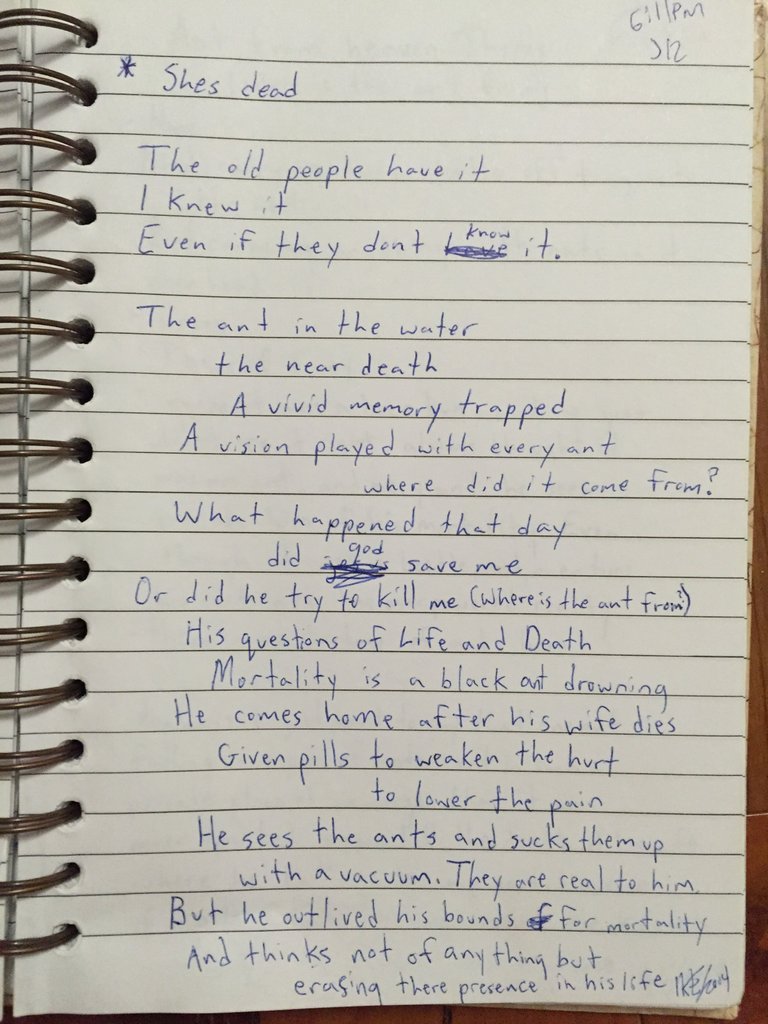 6:11PM
J12
* Shes dead
The old people have it
I knew it
Even if they dont know it.
The ant in the water
the near death
A vivid memory trapped
A vision played with every ant
where did it come from?
What happened that day
did god save me
Or did he try to kill me (Where is the ant from?)
His questions of Life and Death
Mortality is a black ant drowning
He comes home after his wife dies
Given pills to weaken the hurt
to lower the pain
He sees the ants and sucks them up
with a vacuum. They are real to him.
But he outlived his bounds for mortality
And thinks not of anything but
erasing there presence in his life